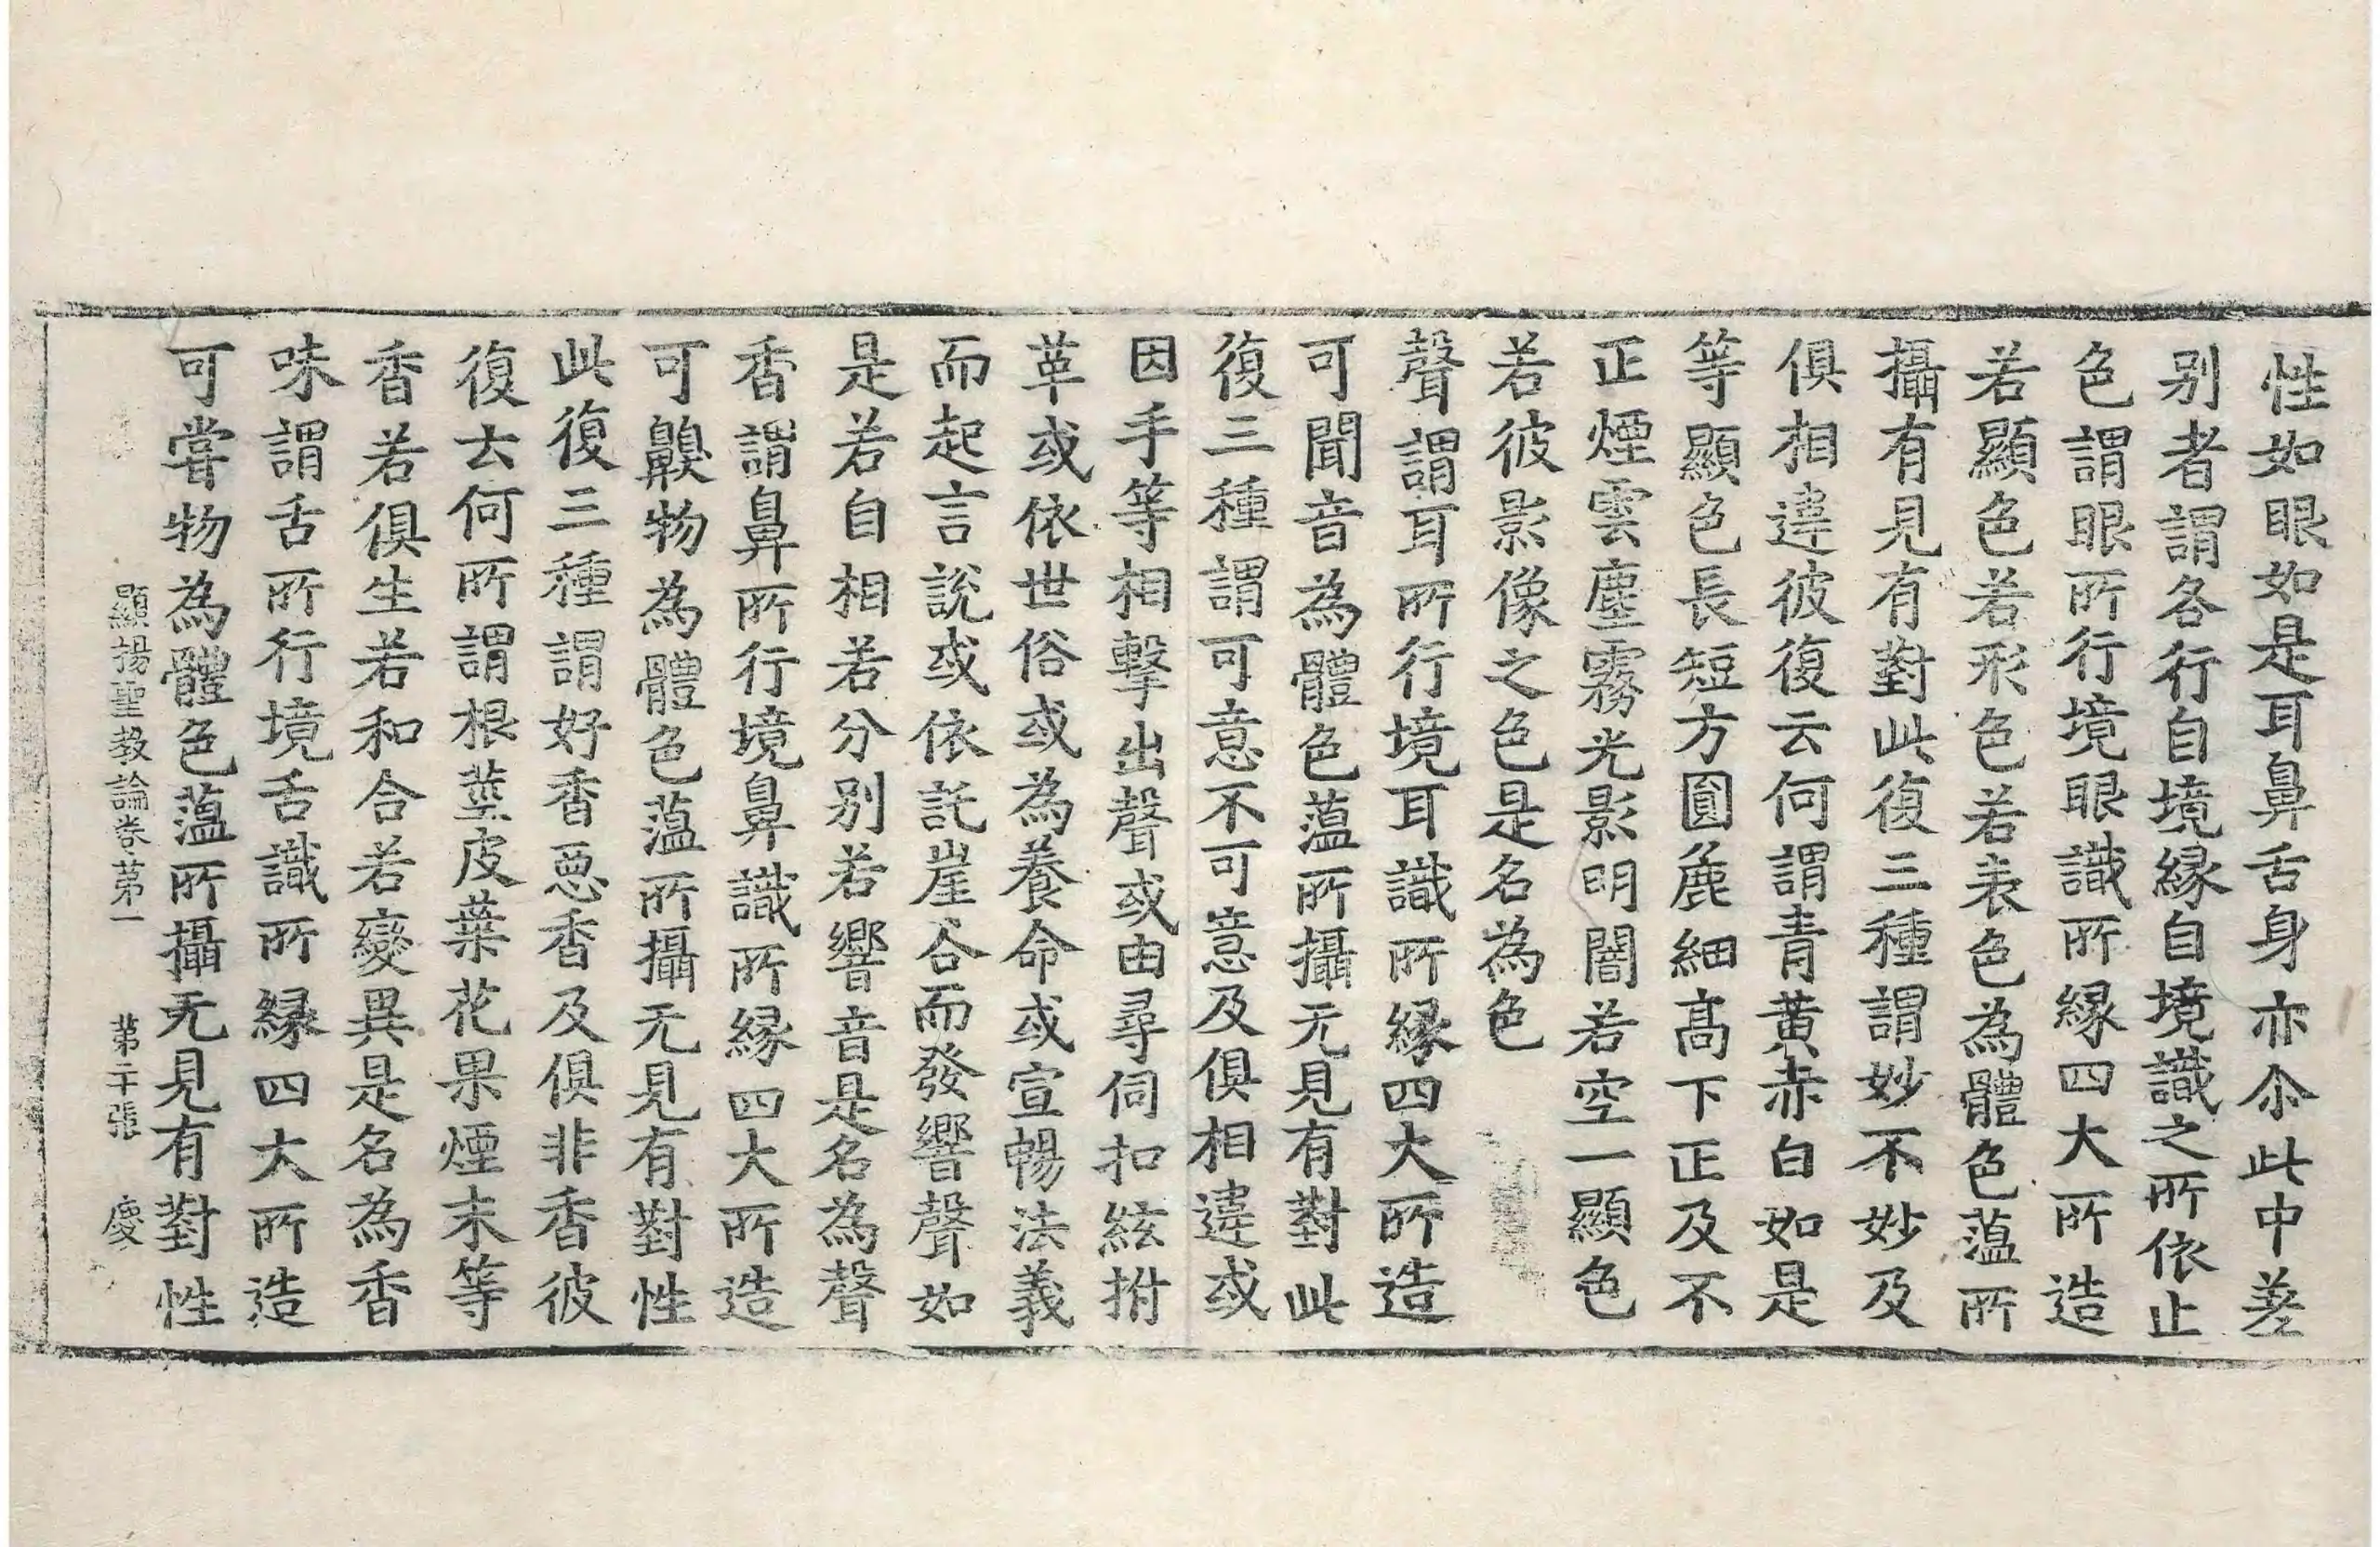 性如眼如是耳鼻舌身亦尒此中差
别者謂各行自境縁自境識之所依止
色謂眼所行境眼識所縁四大所造
若顯色若形色若表色為體色藴所
攝有見有對此復三種謂妙不妙及
俱相違彼復云何謂青黄赤白如是
等顯色長短方圓麁細髙下正及不
正煙雲塵霧光影明闇若空一顯色
若彼影像之色是名為色
聲謂耳所行境耳識所縁四大所造
可聞音為體色藴所攝无見有對此
復三種謂可意不可意及俱相違或
因手等相擊出聲或由尋伺扣絃拊
革或依世俗或為養命或宣暢法義
而起言說或依託崖谷而發響聲如
是若自相若分别若響音是名為聲
香謂鼻所行境鼻識所縁四大所造
可齅物為體色藴所攝无見有對性
此復三種謂好香惡香及俱非香彼
復云何所謂根莖皮葉花果煙末等
香若俱生若和合若變異是名為香
味謂舌所行境舌識所縁四大所造
可嘗物為體色藴所攝无見有對性
顯揚聖教論卷苐一 苐二十張 慶